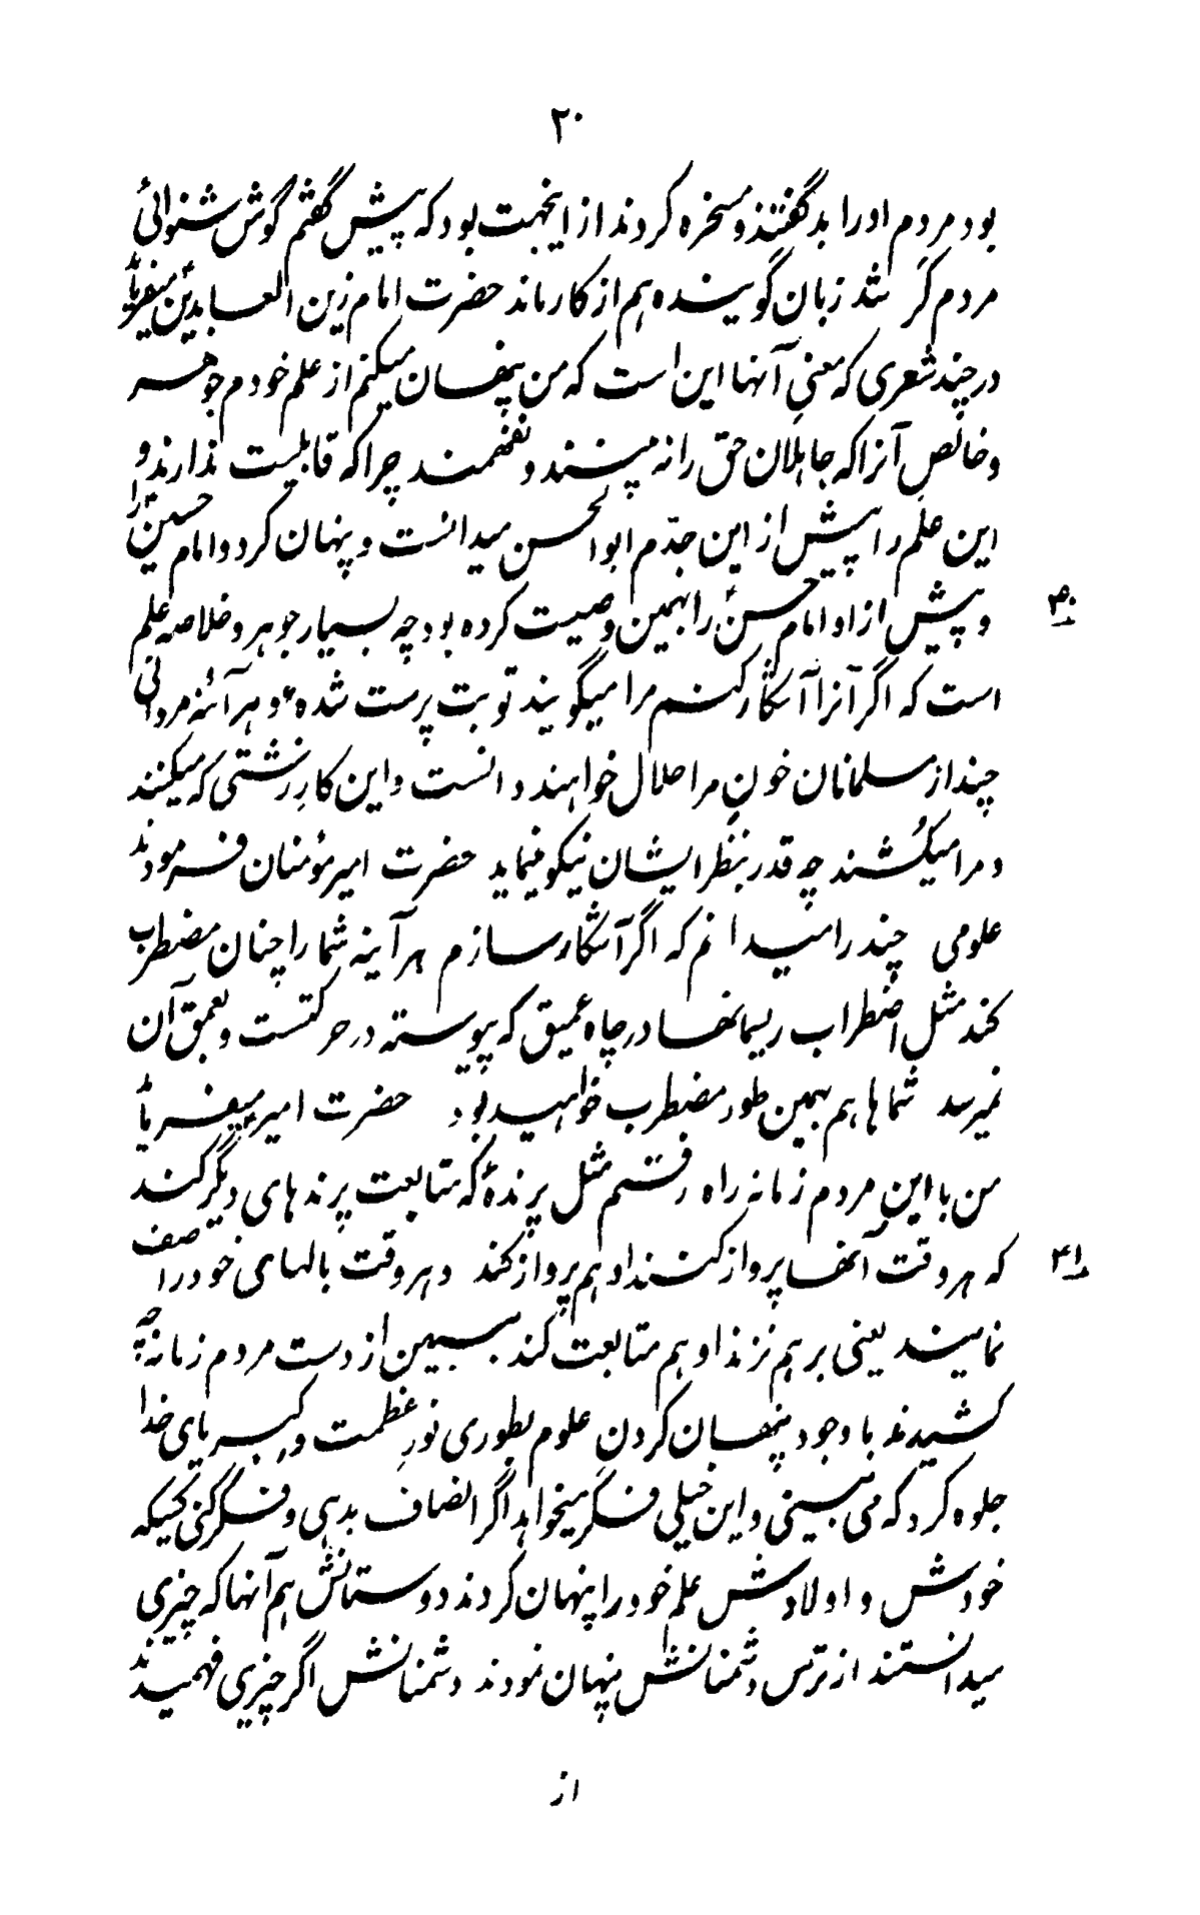 ۲۰
بود مردم اورا بد گفتند و مسخره کردند از اینجهت بود که پیش گفتم گوش شنوائئ
مردم کر شد زبان گوینده هم از کار ماند حضرت امام زین العابدینؑ میفرماید
در چند شعری که معنیِ آنها این است که من پنهان میکنم از علم خودم جوهر
و خالصِ آنرا که جاهلان حق را نه بینند و نفهمند چرا که قابلیت ندارند و
این علم را پیش از این جدّم ابوالحسن میدانست و پنهان کرد و امام حسینؑ را
و پیش از او امام حسنؑ را بهمین وصیت کرده بود چه بسیار جوهر و خلاصهٔ علم
۳۰
است که اگر آنرا آشکار کنم مرا میگویند تو بت پرست شدهٔ و هر آئنه مردانی
چند از مسلمانان خونِ مرا حلال خواهند دانست و این کارِ زشتی که میکنند
و مرا میکُشند چه قدر بنظر ایشان نیکو مینماید حضرت امیر مؤمنان فرمودند
علومی چند را میدانم که اگر آشکار سازم هر آینه شما را چنان مضطرب
کند مثل اضطراب ریسمانها در چاه عمیق که پیوسته در حرکتست و بعمق آن
نمیرسد شماها هم بهمین طور مضطرب خواهید بود حضرت امیر میفرماید
من با این مردم زمانه راه رفتم مثل پرندهٔ که متابعت پرندهای دیگر کند
که هر وقت آنها پرواز کنند او هم پرواز کند و هر وقت بالهای خود را صف
۳۱
نمایند یعنی بر هم نزنند او هم متابعت کند ببین از دست مردم زمانه چه
کشیدند با وجود پنهان کردن علوم بطوری نورِ عظمت و کبریای خدا
جلوه کرد که می بینی و این خیلی فکر میخواهد اگر انصاف بدهی و فکر کنی کسیکه
خودش و اولادش علم خود را پنهان کردند دوستانش هم آنها که چیزی
میدانستند از ترس دشمنانش پنهان نمودند دشمنانش اگر چیزی فهمیدند
از